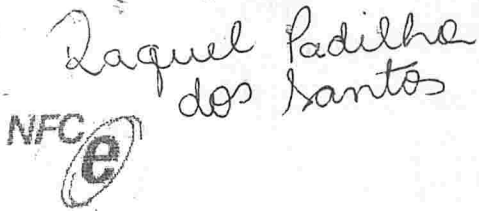 Raquel Padilha
dos Santos
NFC e